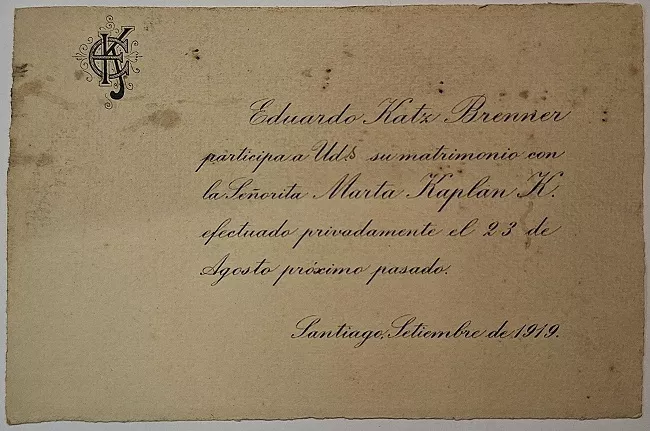 Eduardo Katz Brenner
participa a Uds su matrimonio con
la Señorita Marta Kaplan K.
efectuado privadamente el 23 de
Agosto próximo pasado.
Santiago, Setiembre de 1919.